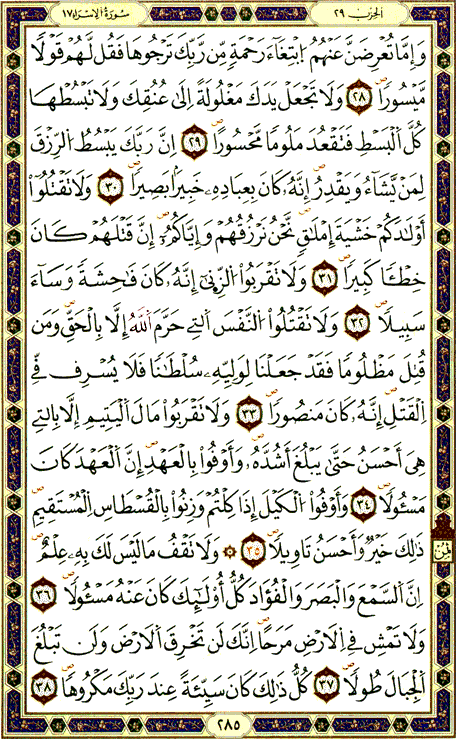 الحزب ٢٩
سورة الإسراء ١٧
وَإِمَّا تُعْرِضَنَّ عَنْهُمُ ابْتِغَآءَ رَحْمَةٍ مِّن رَّبِّكَ تَرْجُوهَا فَقُل لَّهُمْ قَوْلًا
مَّيْسُورًا ٢٨ وَلَا تَجْعَلْ يَدَكَ مَغْلُولَةً إِلَىٰ عُنُقِكَ وَلَا تَبْسُطْهَا
كُلَّ اَلْبَسْطِ فَتَقْعُدَ مَلُومًا مَّحْسُورًا ٢٩ اِنَّ رَبَّكَ يَبْسُطُ الرِّزْقَ
لِمَنْ يَّشَآءُ وَيَقْدِرُ إِنَّهُۥ كَانَ بِعِبَادِهِۦ خَبِيرًا بَصِيرًا ٣٠ وَلَا تَقْتُلُوٓاْ
أَوْلَٰدَكُمْ خَشْيَةَ إِمْلَٰقٍ نَّحْنُ نَرْزُقُهُمْ وَإِيَّاكُمُۥٓ إِنَّ قَتْلَهُمْ كَانَ
خِطْـًٔا كَبِيرًا ٣١ وَلَا تَقْرَبُواْ اُلزِّنَىٰٓ إِنَّهُۥ كَانَ فَٰحِشَةً وَسَآءَ
سَبِيلًا ٣٢ وَلَا تَقْتُلُواْ اُلنَّفْسَ اَلتِے حَرَّمَ اَللَّهُ إِلَّا بِالْحَقِّ وَمَن
قُتِلَ مَظْلُومًا فَقَدْ جَعَلْنَا لِوَلِيِّهِۦ سُلْطَٰنًا فَلَا يُسْرِف فِّے
اِلْقَتْلِ إِنَّهُۥ كَانَ مَنصُورًا ٣٣ وَلَا تَقْرَبُواْ مَالَ اَلْيَتِيمِ إِلَّا بِالتِے
هِيَ أَحْسَنُ حَتَّىٰ يَبْلُغَ أَشُدَّهُۥ وَأَوْفُواْ بِالْعَهْدِ إِنَّ اَلْعَهْدَ كَانَ
مَسْـُٔولًا ٣٤ وَأَوْفُواْ اُلْكَيْلَ إِذَا كِلْتُمْ وَزِنُواْ بِالْقُسْطَاسِ اِلْمُسْتَقِيمِ
ذَٰلِكَ خَيْرٌ وَأَحْسَنُ تَاوِيلًا ٣٥ وَلَا تَقْفُ مَا لَيْسَ لَكَ بِهِۦ عِلْمٌ
اِنَّ اَلسَّمْعَ وَالْبَصَرَ وَالْفُؤَادَ كُلُّ أُوْلَٰٓئِكَ كَانَ عَنْهُ مَسْـُٔولًا ٣٦
وَلَا تَمْشِ فِے اِلَارْضِ مَرَحًا اِنَّكَ لَن تَخْرِقَ اَلَارْضَ وَلَن تَبْلُغَ
اَلْجِبَالَ طُولًا ٣٧ كُلُّ ذَٰلِكَ كَانَ سَيِّئَةً عِندَ رَبِّكَ مَكْرُوهًا ٣٨
ثمن
٢٨٥